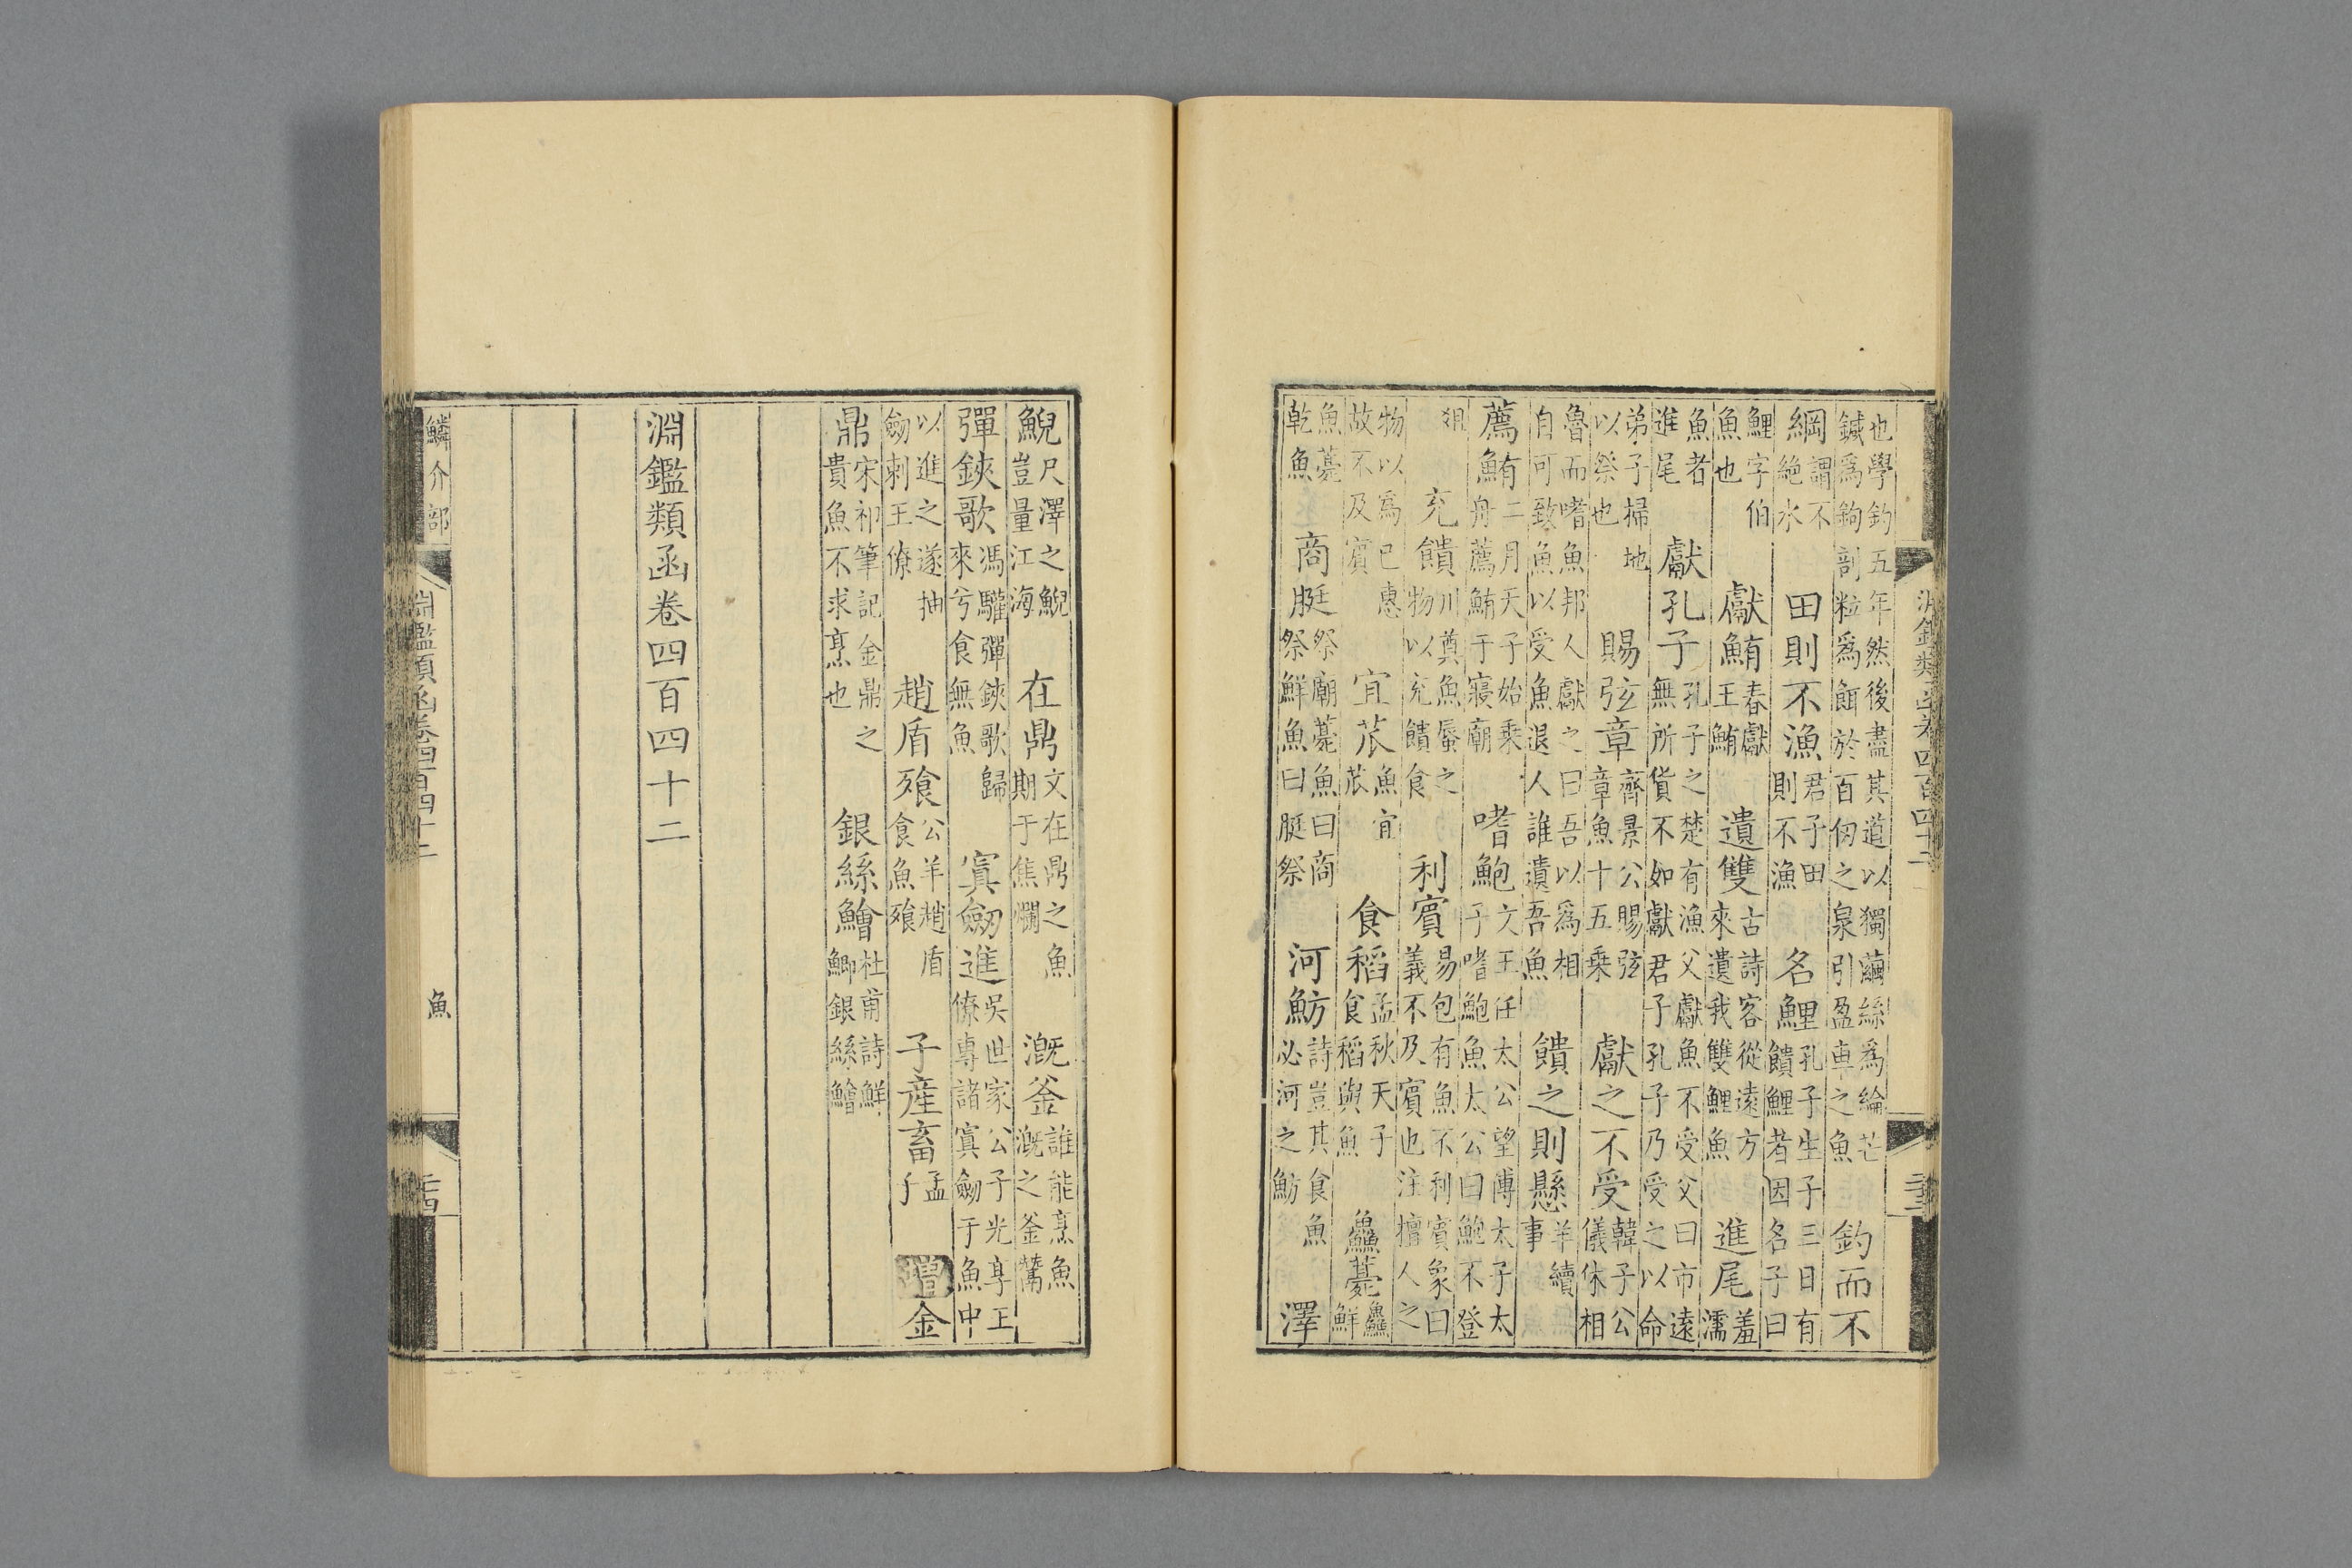 淵鑑類函卷四百四十二
也學釣五年然後盡其道以獨繭絲爲綸芒鍼爲鉤剖粒爲餌於百仞之泉引盈車之魚釣而不
綱謂不絶水田則不漁君子田則不漁名鯉孔子生子三日有饋鯉者因名子曰
鯉字伯魚也獻鮪春獻王鮪遺雙古詩客從遠方來遺我雙鯉魚進尾羞濡
魚者進尾獻孔子孔子之楚有漁父獻魚不受父曰市遠無所貨不如獻君子孔子乃受之以命
弟子掃地以祭也賜弦章齊景公賜弦章魚十五乘獻之不受韓子公儀休相
魯而嗜魚邦人獻之曰吾以爲相自可致魚以受魚退人誰遺吾魚饋之則懸羊續事
薦鮪二月天子始乘舟薦鮪于寢廟嗜鮑文王任太公望傅太子太子嗜鮑魚太公曰鮑不登
俎充饋川奠魚蜃之物以充饋食利賓易包有魚不利賓象曰義不及賓也注擅人之
物以爲已惠故不及賓宜苽魚宜苽食稻孟秋天子食稻與魚鱻薧鱻鮮
魚薧乾魚商脡祭廟薧魚曰商祭鮮魚曰脡祭河魴詩豈其食魚必河之魴澤
鯢尺澤之鯢豈量江海在鼎文在鼎之魚期于焦爛漑釜誰能烹魚漑之釜鬵
彈鋏歌馮驩彈鋏歌歸來兮食無魚寘劒進吳世家公子光享王僚專諸寘劒于魚中
以進之遂抽劒刺王僚趙盾飱公羊趙盾食魚飱子産畜孟子增金
鼎宋祁筆記金鼎之貴魚不求烹也銀絲鱠杜甫詩鮮鯽銀絲鱠
淵鑑類函卷四百四十二
鱗介部 淵鑑類函卷四百四十二 魚